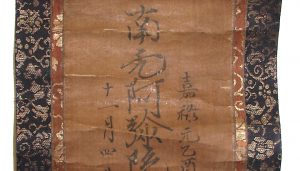 嘉禄元乙酉
南无阿弥陀
十一月